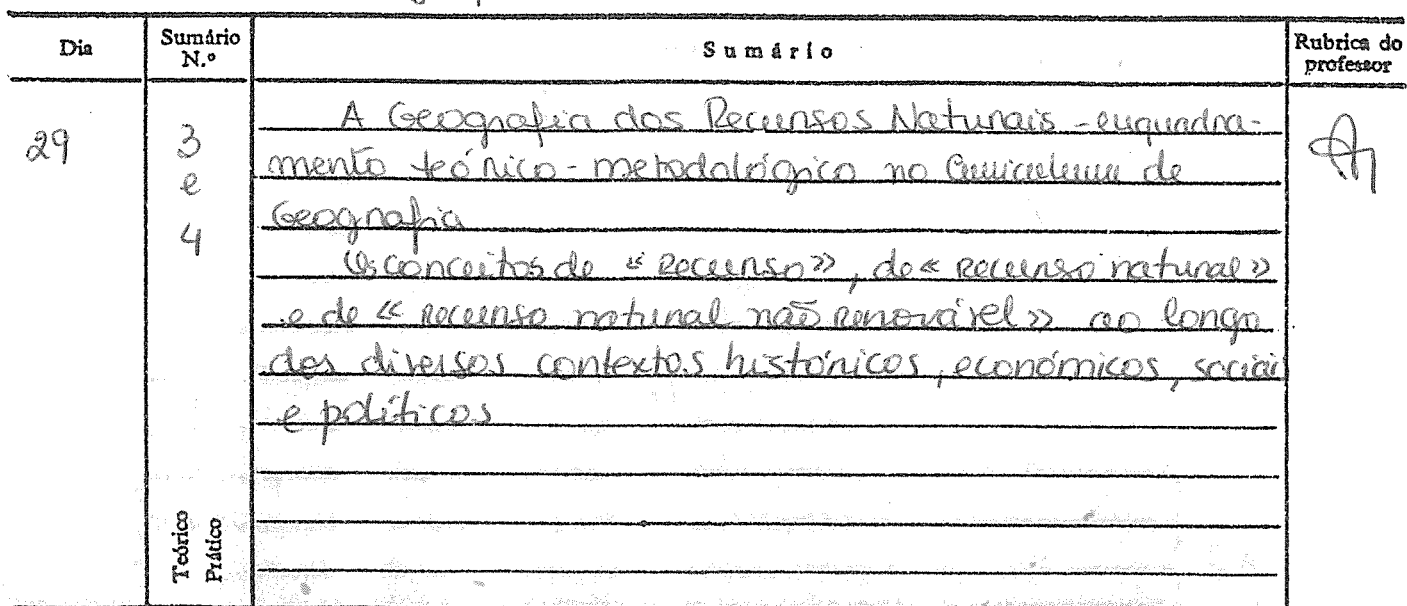 Dia Sumário N.º Sumário Rubrica do professor
29 3 e 4
A Geografia dos Recursos Naturais - enquadra-
mento teórico-metodológico no Curriculum de
Geografia
Os conceitos de «Recurso», de «recurso natural»
e de «recurso natural não renovável» ao longo
dos diversos contextos históricos, económicos, sociai
e políticos
Teórico
Prático